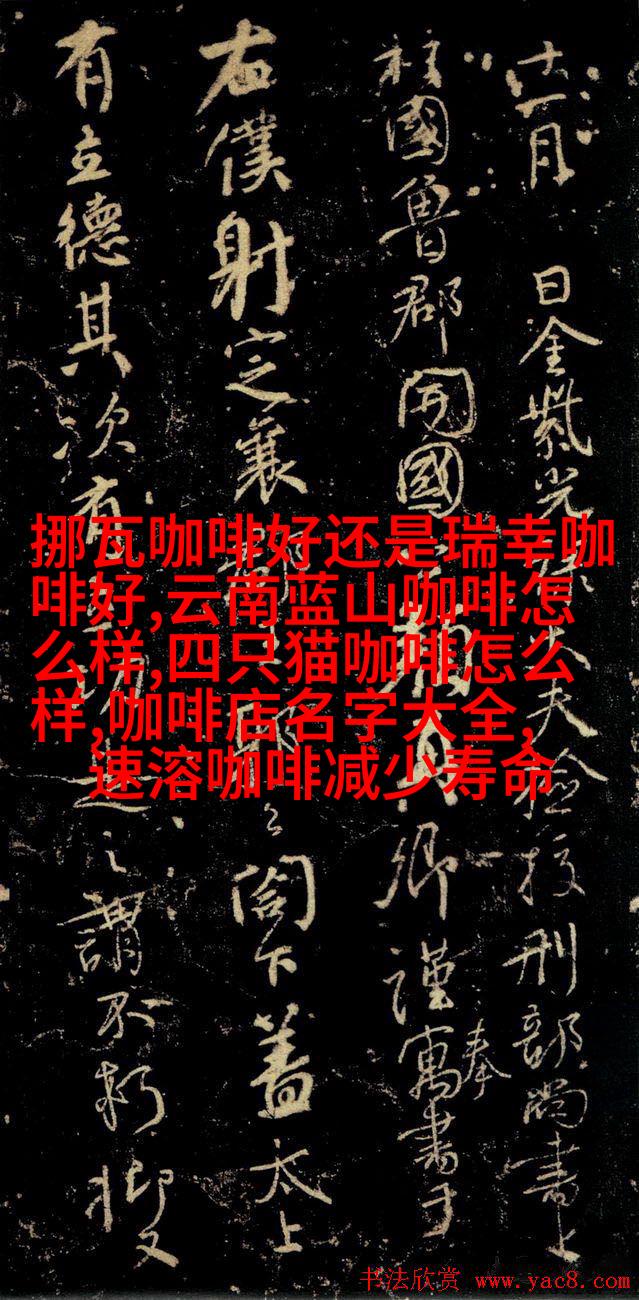 十一月 日金紫光禄大夫檢校刑部尚書上
柱國魯郡開國公顏真卿謹奉寓書于
右僕射定襄郡王郭公閤下蓋太上
有立德其次有立功是之謂不朽抑又
挪瓦咖啡好还是瑞幸咖
啡好,云南蓝山咖啡怎
么样,四只猫咖啡怎么
样,咖啡店名字大全,
速溶咖啡减少寿命
书法欣赏 www.yac8.com